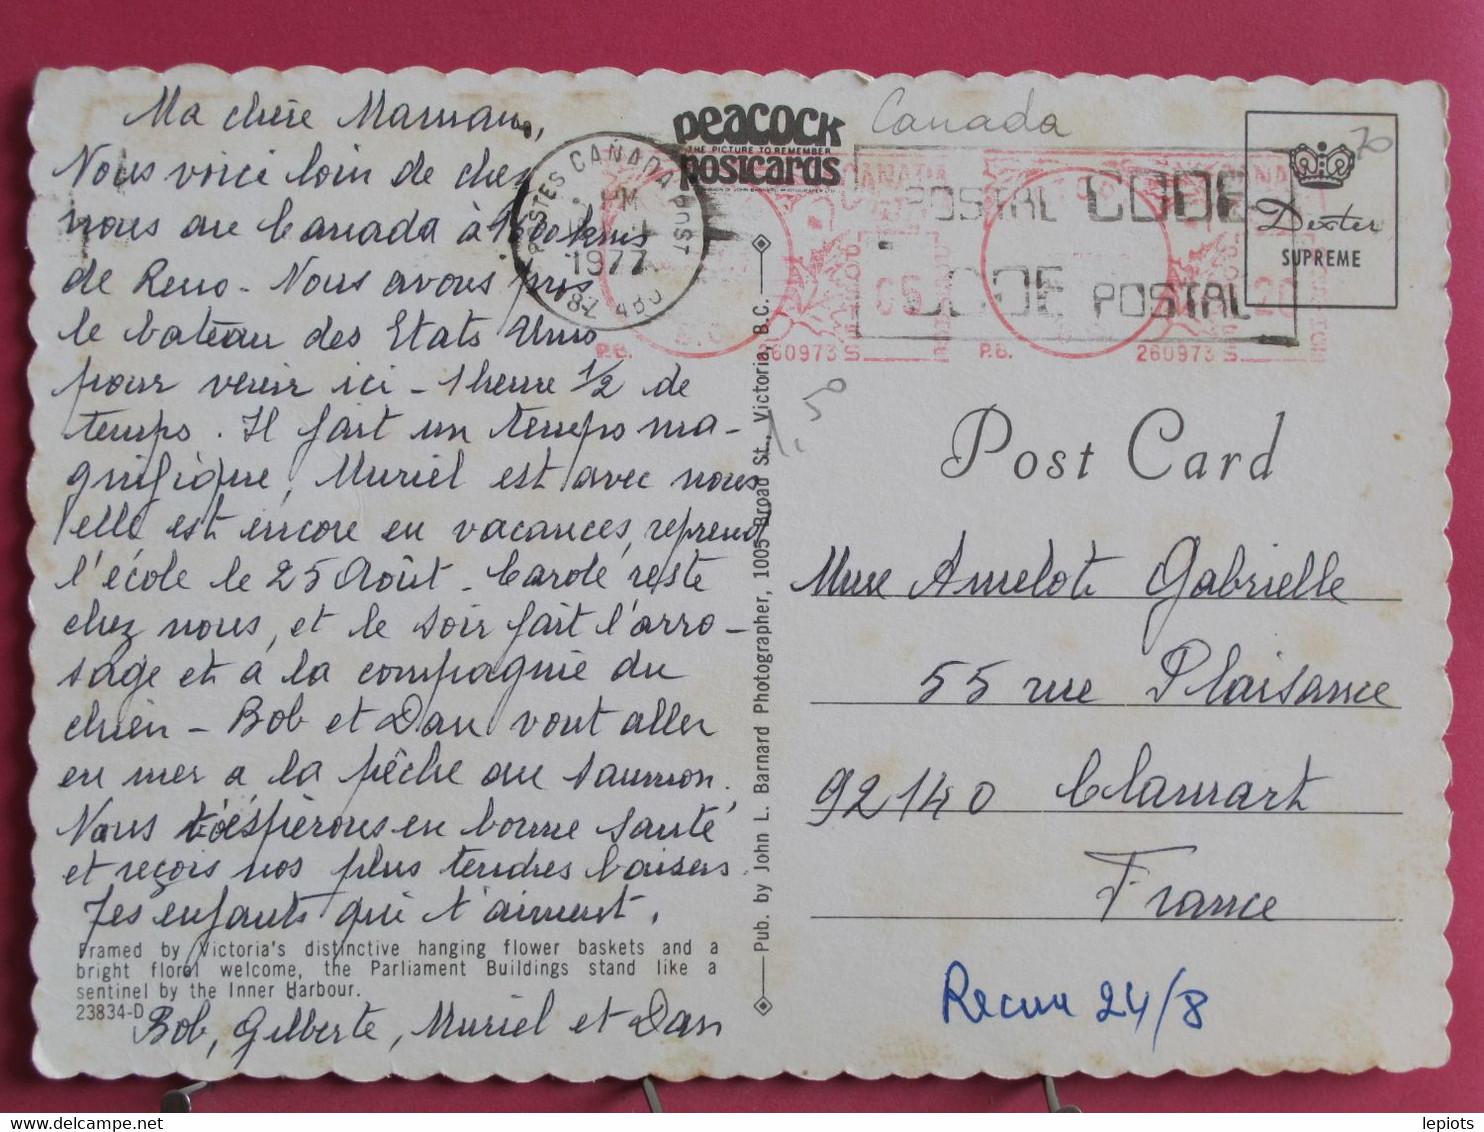 Ma chère Maman,
Nous voici loin de chez
nous au Canada à 1500 kms
de Reno - Nous avons pris
le bateau des Etats Unis
pour venir ici - 1 heure 1/2 de
temps. Il fait un temps ma-
gnifique, Muriel est avec nous
elle est encore en vacances, reprend
l'école le 25 Août - Carole reste
chez nous, et le soir fait l'arro-
sage et à la compagnie du
chien - Bob et Dan vont aller
en mer a la pêche au saumon.
Nous t'espèrons en bonne santé
et reçois nos plus tendres baisers.
Tes enfants qui t'aiment.
Bob, Gilberte, Muriel et Dan
Framed by Victoria's distinctive hanging flower baskets and a
bright floral welcome, the Parliament Buildings stand like a
sentinel by the Inner Harbour.
23834-D
Pub. by John L. Barnard Photographer, 1005 Broad St., Victoria, B.C.
peacock
THE PICTURE TO REMEMBER
postcards
Canada
70
POSTES CANADA POST
PM
1977
V8Z 4B0
POSTAL CODE
CODE POSTAL
CANADA
05
20
P.B.
260973 S
P.B.
260973 S
Dexter
SUPREME
1,50
Post Card
Mme Amelot Gabrielle
55 rue Plaisance
92140 Clamart
France
Recue 24/8
lepiots